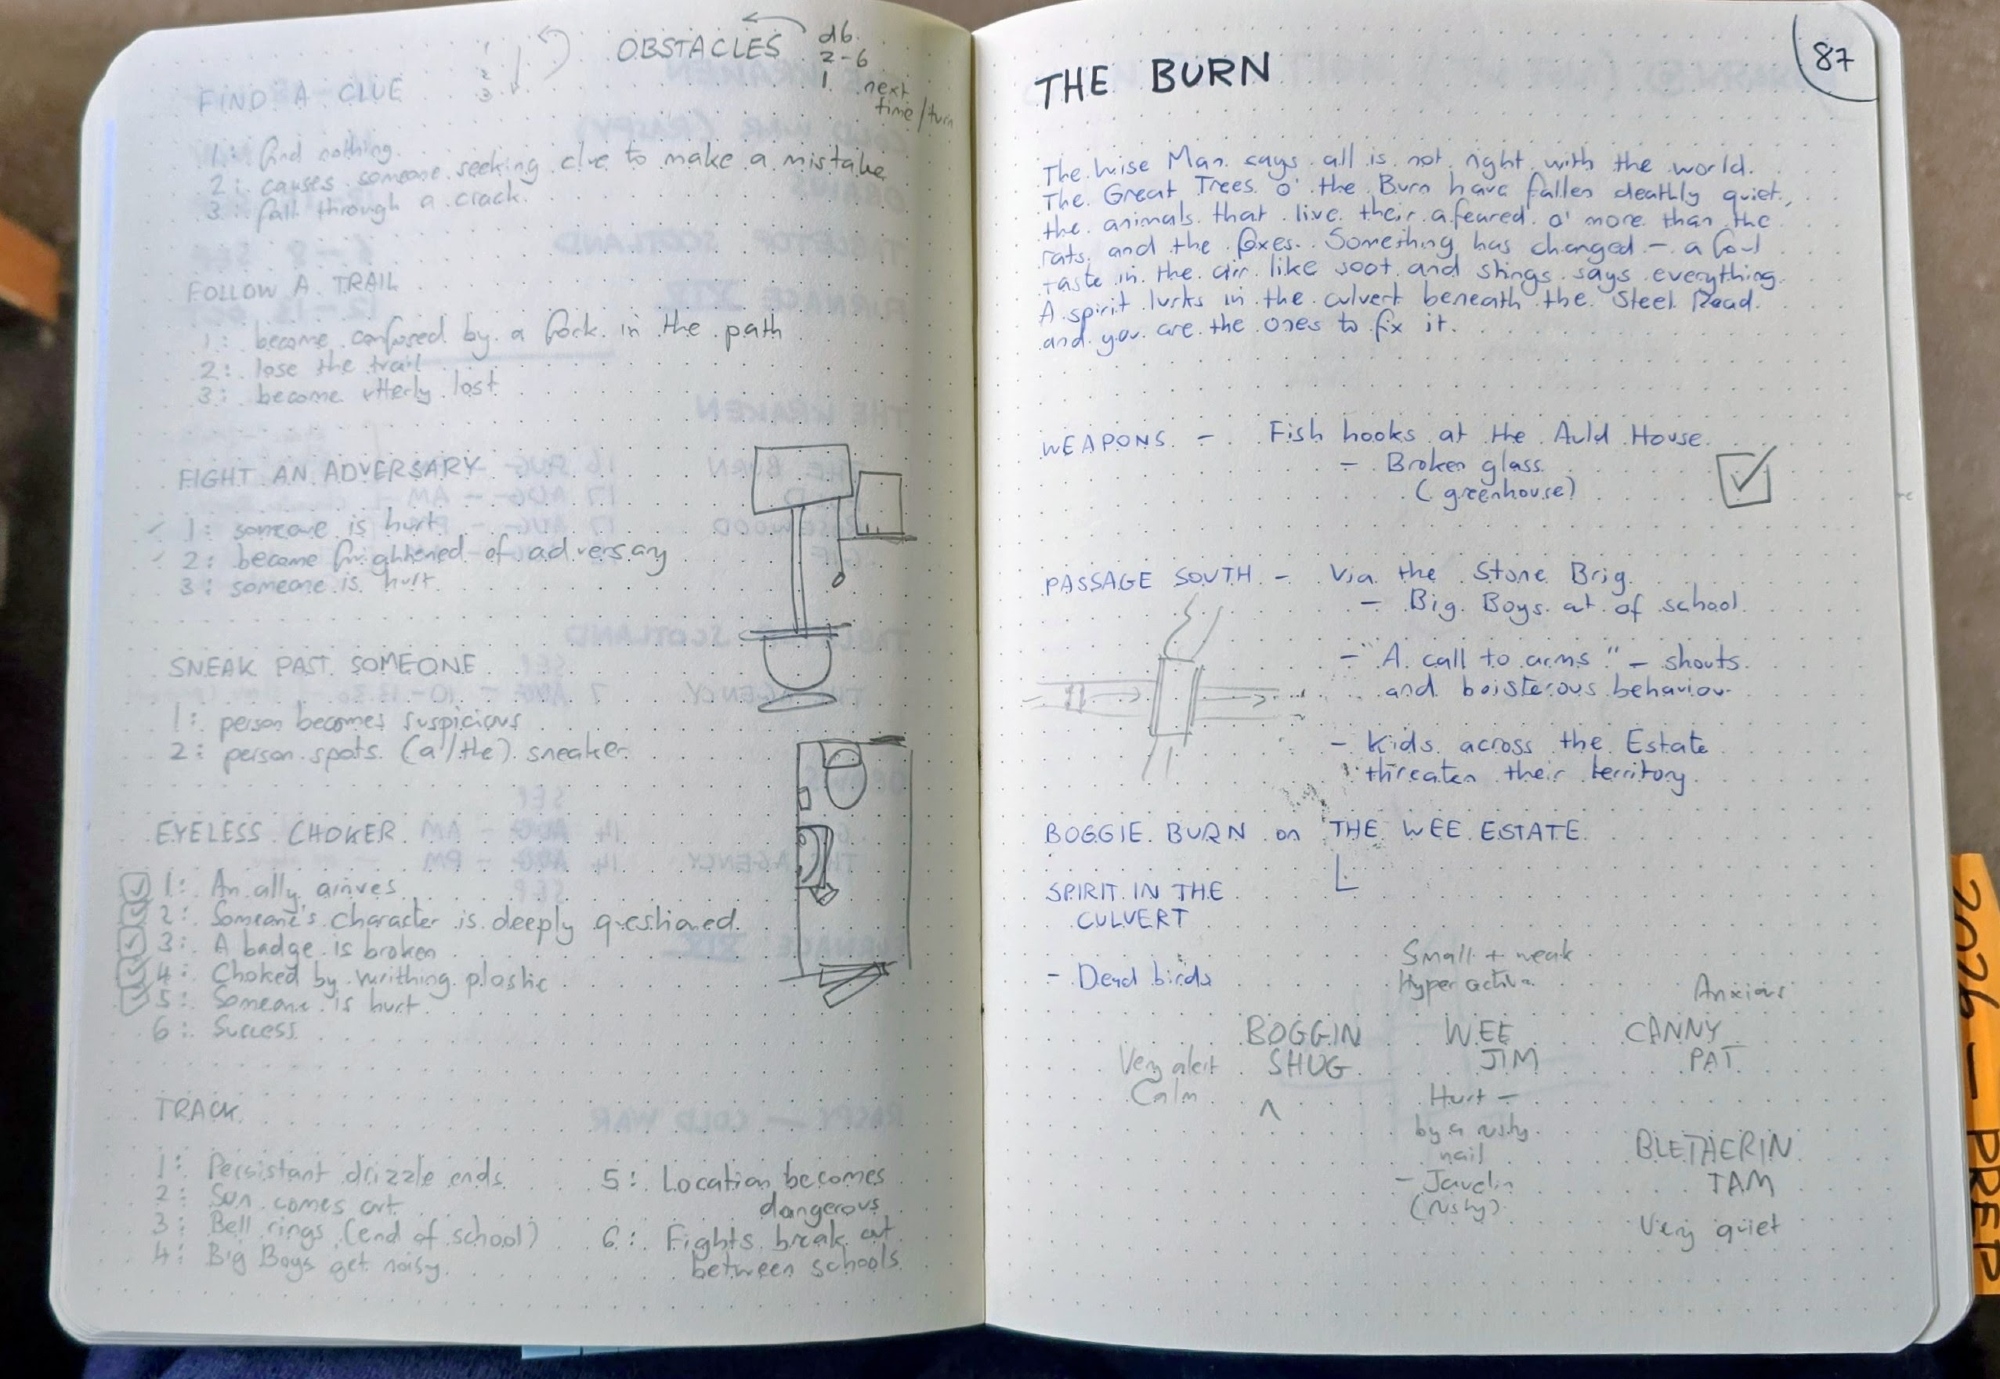 OBSTACLES
d6
2-6
1 next
time/turn
1
2
3
FIND A CLUE
1: find nothing
2: causes someone seeking clue to make a mistake
3: fall through a crack
FOLLOW A TRAIL
1: become confused by a fork in the path
2: lose the trail
3: become utterly lost
FIGHT AN ADVERSARY
1: someone is hurt
2: become frightened of adversary
3: someone is hurt
SNEAK PAST SOMEONE
1: person becomes suspicious
2: person spots (a/the) sneaker
EYELESS CHOKER
1: An ally arrives
2: Someone's character is deeply questioned
3: A badge is broken
4: Choked by writhing plastic
5: Someone is hurt
6: Success
TRACK
1: Persistant drizzle ends
2: Sun comes out
3: Bell rings (end of school)
4: Big Boys get noisy
5: Location becomes
dangerous
6: Fights break out
between schools
87
THE BURN
The Wise Man says all is not right with the world.
The Great Trees o' the Burn have fallen deathly quiet,
the animals that live their afeared o' more than the
rats and the foxes. Something has changed - a foul
taste in the air like soot and stings says everything.
A spirit lurks in the culvert beneath the Steel Road
and you are the ones to fix it.
WEAPONS - Fish hooks at the Auld House
- Broken glass
(greenhouse)
PASSAGE SOUTH - Via the Stone Brig
- Big Boys at of school
- "A call to arms" - shouts
and boisterous behaviour
- Kids across the Estate
threaten their territory
BOGGIE BURN on THE WEE ESTATE
SPIRIT IN THE
CULVERT
- Dead birds
Small + weak
Hyperactive
Anxious
BOGGIN
SHUG
WEE
JIM
CANNY
PAT
Very alert
Calm
Hurt -
by a rusty
nail
- Javelin
(rusty)
BLETHERIN
TAM
Very quiet
2026 - PREP